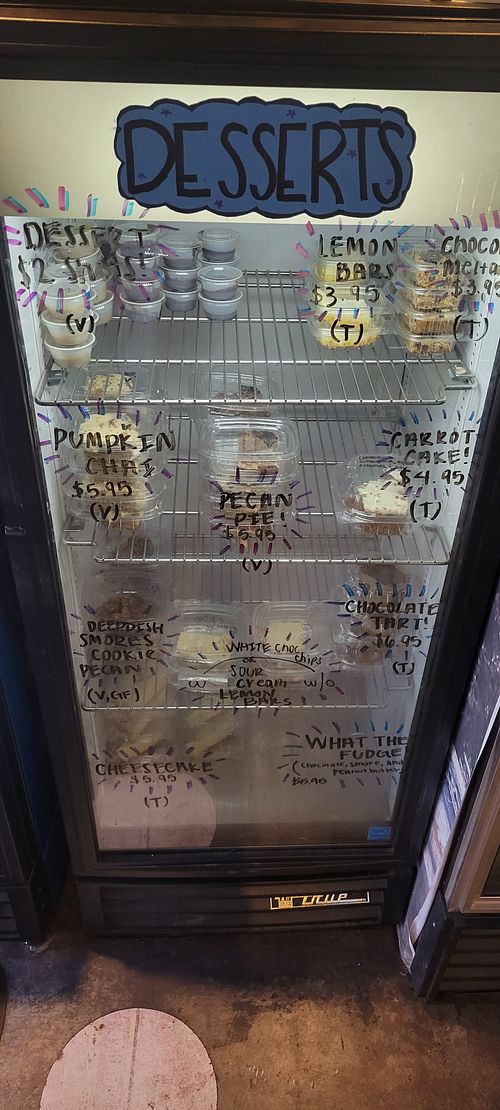 DESSERTS
DESSERT
(V)
LEMON
BARS
$3.95
(T)
CHOCO
$3.9
(T)
PUMPKIN
CHAI
$5.95
(V)
PECAN
PIE!
$5.95
(V)
CARROT
CAKE!
$4.95
(T)
DEEPDISH
SMORES
COOKIE
PECAN
(V, GF)
WHITE CHOC
chips
OR
SOUR
W cream w/o
LEMON
BARS
CHOCOLATE
TART!
$6.95
(T)
CHEESECAKE
$5.95
(T)
WHAT THE
FUDGE!
(chocolate, smore, and
peanutbutter
$5.95
TRUE